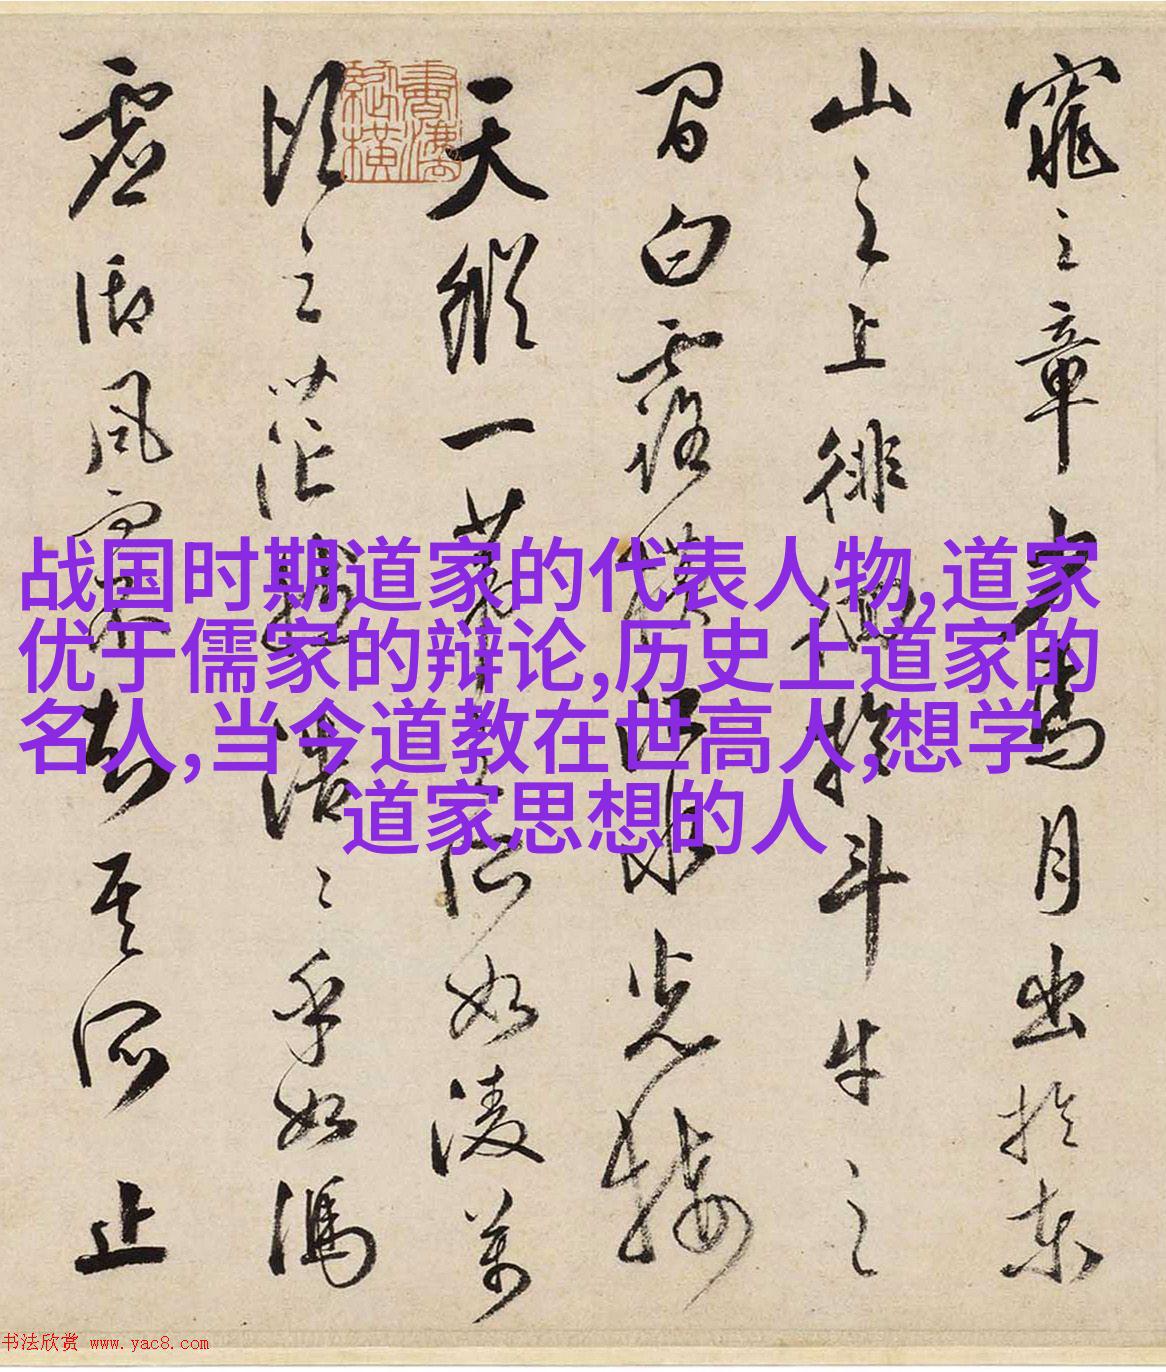 窕之章少焉月出於東
山之上徘徊於斗牛之
間白露橫江水光接
天縱一葦之所如凌萬
頃之茫然浩〻乎如馮
虛御風而不知其所止
战国时期道家的代表人物,道家
优于儒家的辩论,历史上道家的
名人,当今道教在世高人,想学
道家思想的人
书法欣赏 www.yac8.com